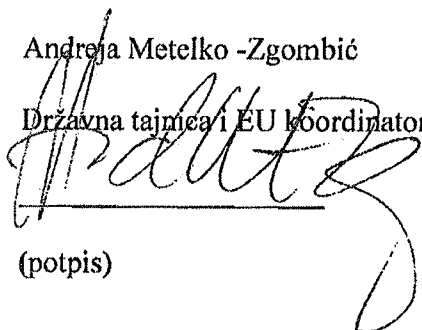 Andreja Metelko -Zgombić
Državna tajnica i EU koordinator
(potpis)